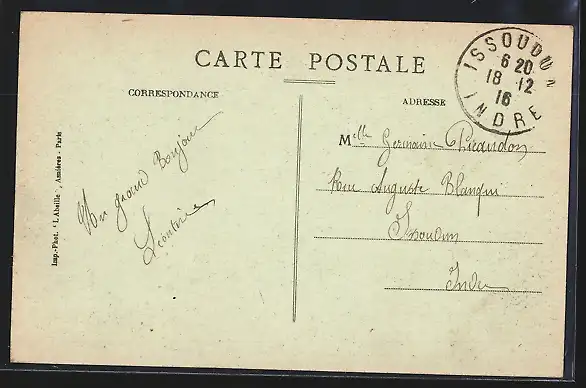 CARTE POSTALE
CORRESPONDANCE
ADRESSE
ISSOUDUN
6 20
18 12
16
INDRE
Un grand Bonjour
Léontine
Imp.-Phot. "L'Abeille", Asnières - Paris
Mlle Germaine
Rue Auguste Blanqui
Issoudun
Indre